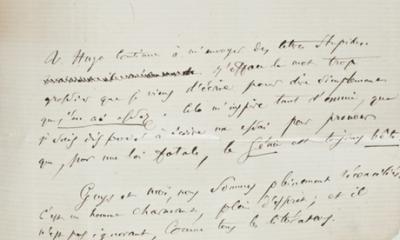 V. Hugo continue à m'envoyer des lettres stupides.
j'efface le mot trop
grossier que je viens d'écrire pour dire simplement
qu'j'en ai assez. cela m'inspire tant d'ennui, que
je suis disposé à écrire un essai pour prouver
que, par une loi fatale, le Génie est toujours bête.
Guys et moi, nous sommes pleinement réconciliés.
C'est un homme charmant, plein d'esprit, et il
n'est pas ignorant, comme tous les littérateurs.